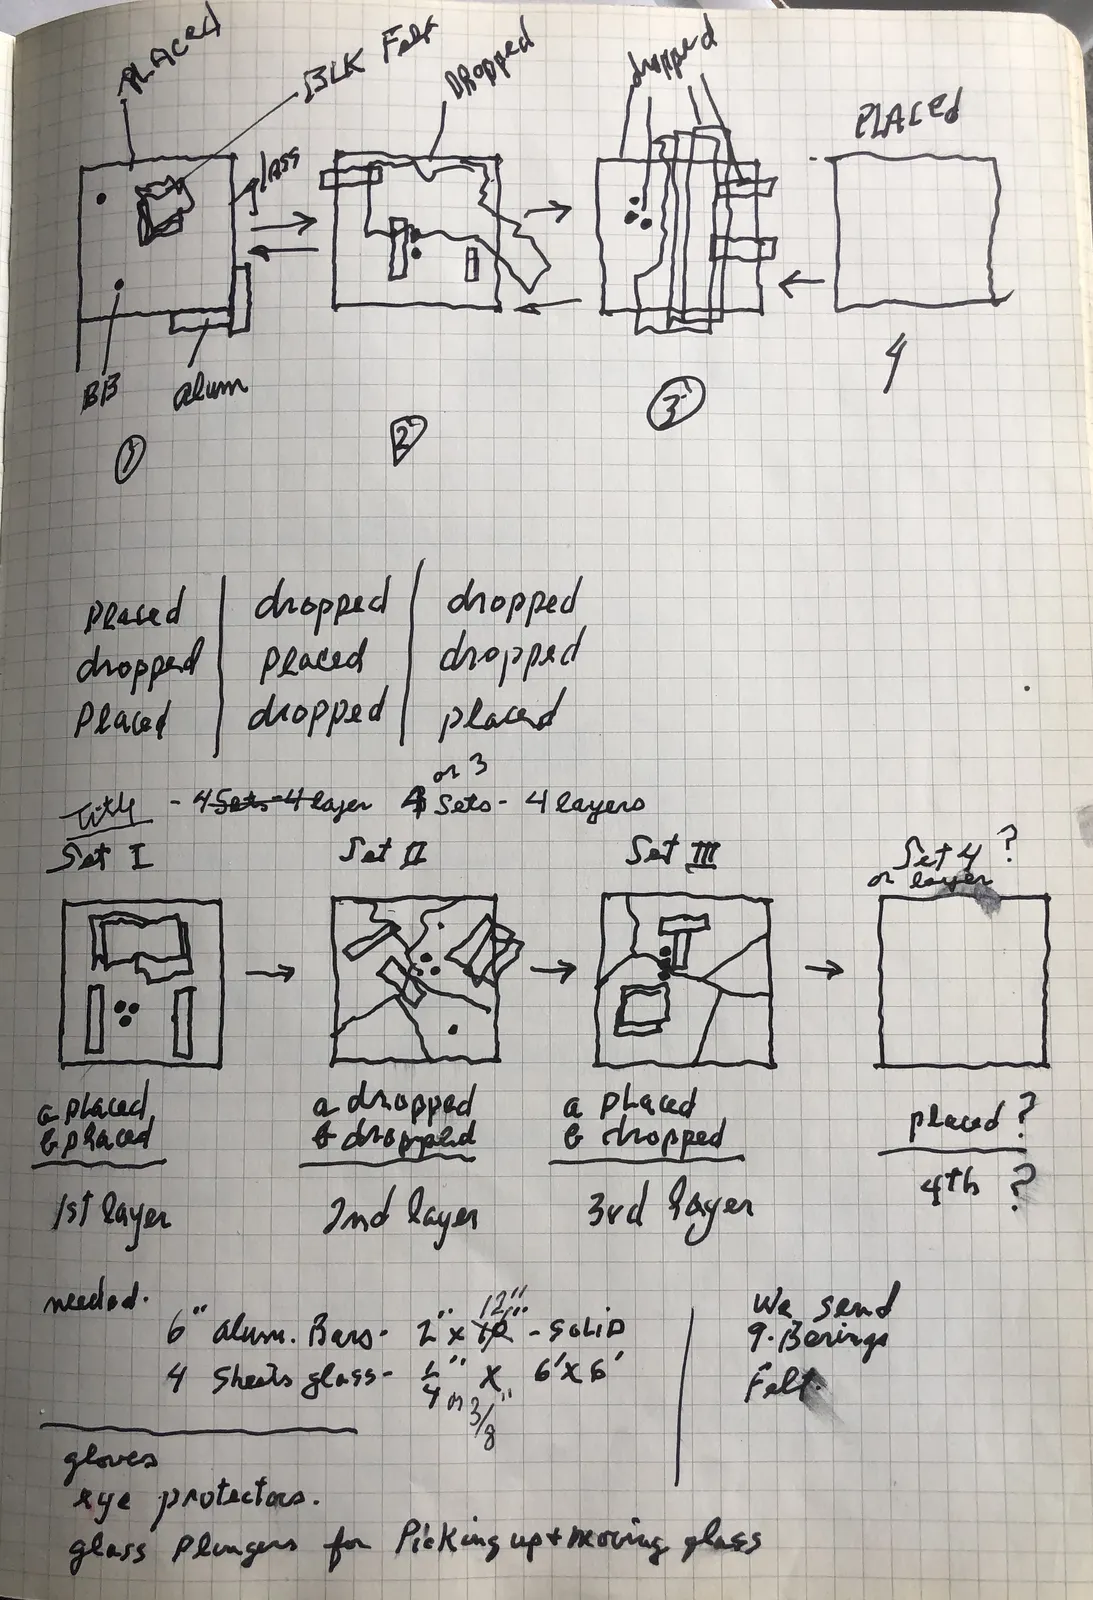 PLACED
BLK Felt
Dropped
dropped
PLACED
BB
alum
1
2
3
4
Placed | dropped | dropped
dropped | placed | dropped
Placed | dropped | placed
or 3
Title - 4 Sets - 4 layer 4 Sets - 4 layers
Set I
Set II
Set III
Set 4 ?
or layer
a placed
b placed
a dropped
b dropped
a placed
b dropped
placed ?
1st layer
2nd layer
3rd layer
4th ?
needed.
12"
6" alum. Bars - 2" x - SOLID
4 Sheets glass - 1/4" x 6' x 6'
or 3/8"
We send
9 - Berings
Felt.
gloves
eye protectors.
glass Plungers for Picking up + moving glass